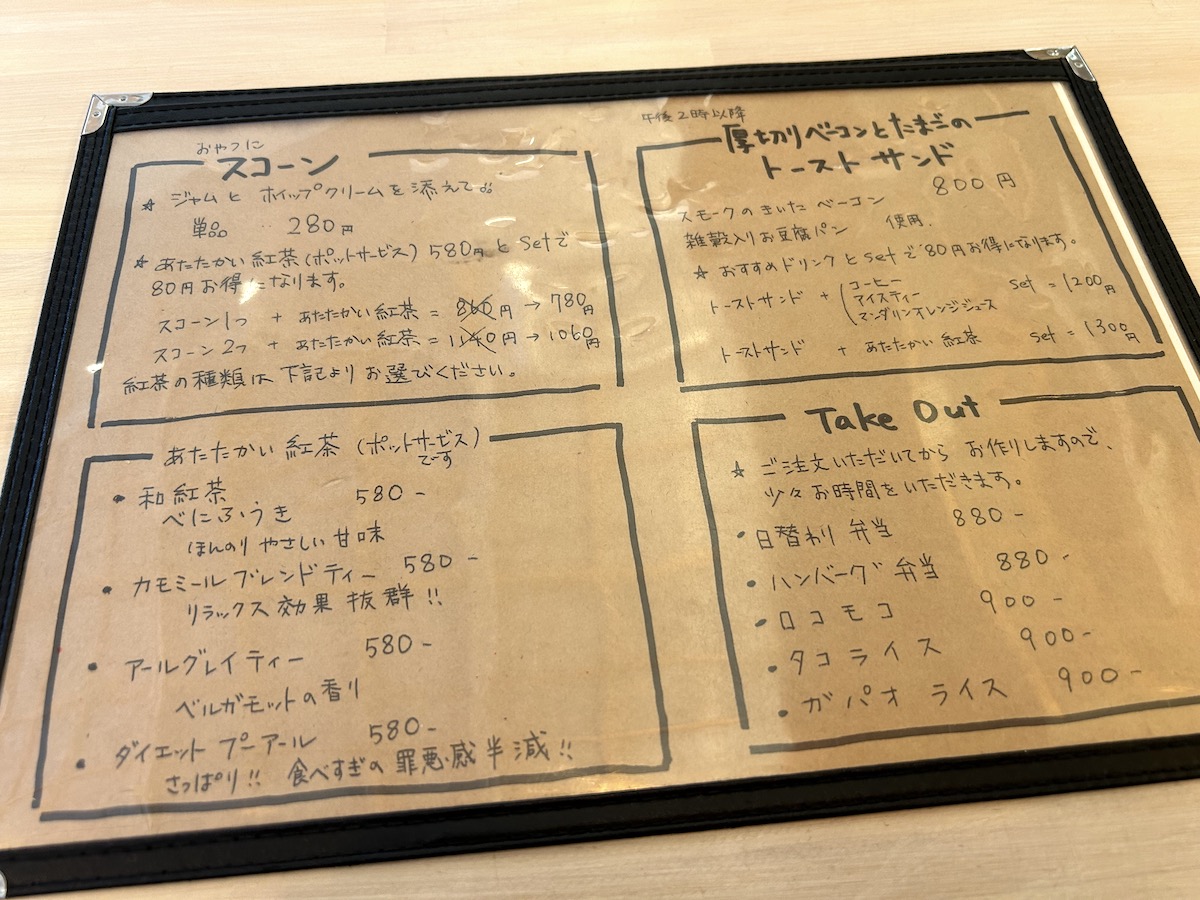 おやつに
スコーン
☆ ジャムと ホイップクリームを添えて♨
単品 ‥ 280円
☆ あたたかい紅茶(ポットサービス) 580円とSetで
80円お得になります。
スコーン1つ + あたたかい紅茶 = 860円 → 780円
スコーン2つ + あたたかい紅茶 = 1140円 → 1060円
紅茶の種類は下記よりお選びください。
あたたかい紅茶 (ポットサービス)
です
• 和紅茶 580-
べにふうき
ほんのり やさしい 甘味
• カモミール ブレンドティー 580-
リラックス効果 抜群!!
• アールグレイティー 580-
ベルガモットの香り
• ダイエット プーアール 580-
さっぱり!! 食べすぎの 罪悪感半減!!
午後2時以降
厚切りベーコンとたまごの
トーストサンド
800円
スモークのきいた ベーコン
雑穀入りお豆腐パン 使用.
☆ おすすめドリンクとSetで80円お得になります。
トーストサンド + (コーヒー
アイスティー
マンダリンオレンジジュース
Set = 1200円
トーストサンド + あたたかい紅茶 Set = 1300円
Take Out
☆ ご注文いただいてから お作りしますので、
少々お時間をいただきます。
• 日替わり弁当 880-
• ハンバーグ弁当 880-
• ロコモコ 900-
• タコライス 900-
• ガパオ ライス 900-